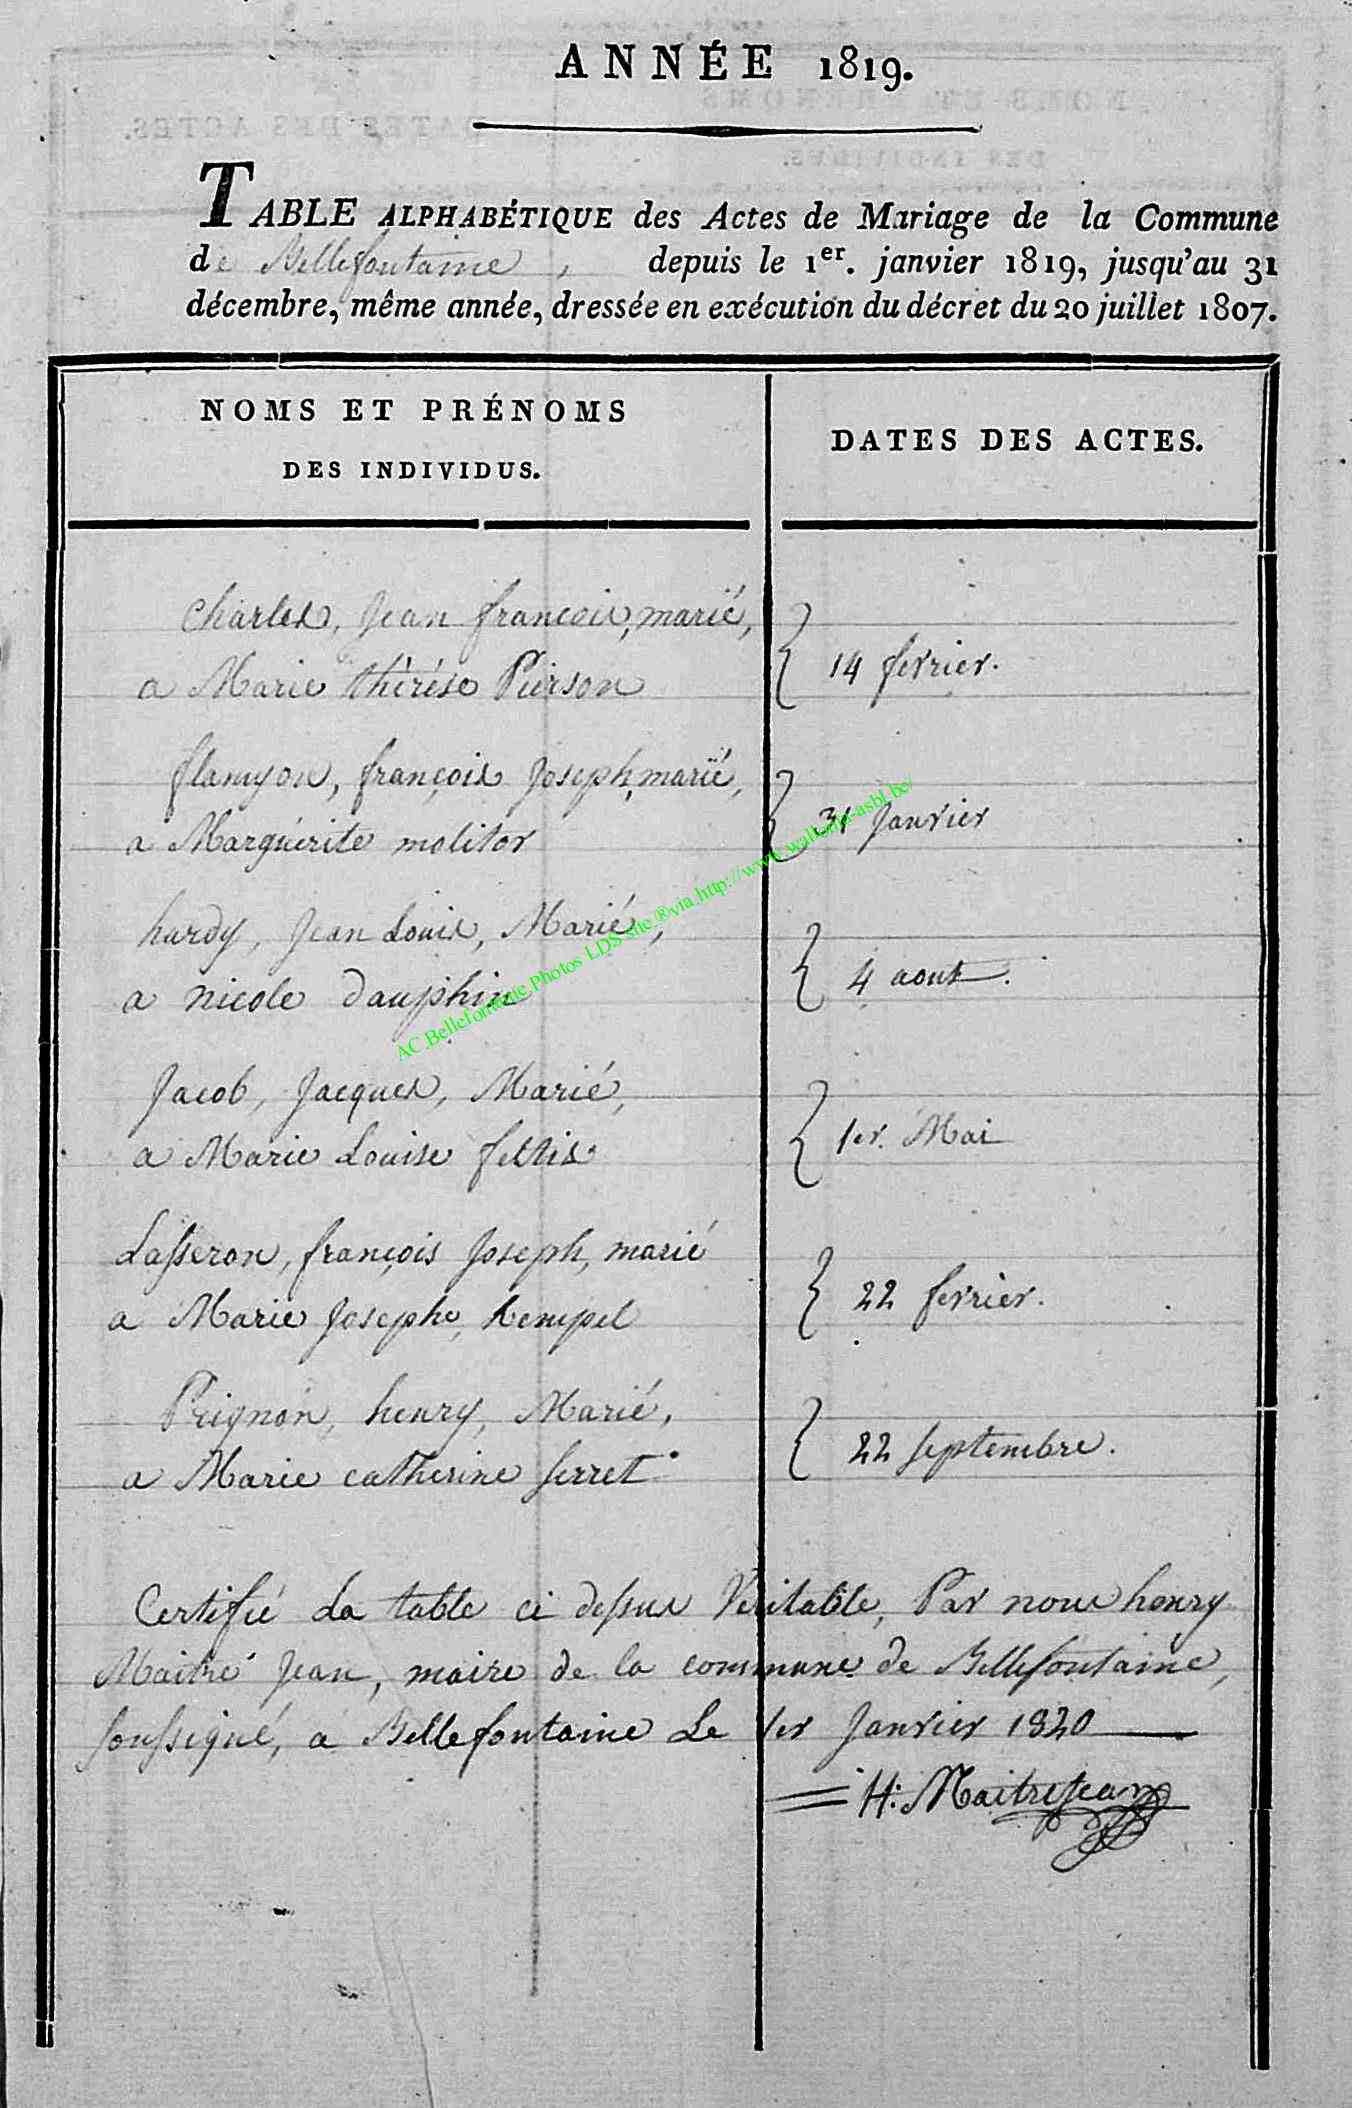 ANNÉE 1819.
TABLE ALPHABÉTIQUE des Actes de Mariage de la Commune
de Bellefontaine, depuis le 1er. janvier 1819, jusqu'au 31
décembre, même année, dressée en exécution du décret du 20 juillet 1807.
NOMS ET PRÉNOMS
DES INDIVIDUS.
DATES DES ACTES.
Charles, Jean francois, marié,
a Marie thérése Pierson
14 fevrier.
flamyon, françois Joseph, marié,
a Marguérite molitor
31 Janvier
hardy, Jean Louis, Marié,
a nicole dauphin
4 aout.
Jacob, Jacques, Marié,
a Marie Louise
1er. Mai
Lasseron, françois Joseph, marié
a Marie Josephe, hempel
22 fevrier.
Peignon, henry, Marié,
a Marie catherine serret
22 septembre.
Certifié La table ci dessus Veritable, Par nous henry
Maitre Jean, maire de la commune de Bellefontaine,
soussigné, a Bellefontaine Le 1er Janvier 1820
H: MaitreJean
AC Bellefontaine Photos LDS site ®via http://www.wallonia-asbl.be/